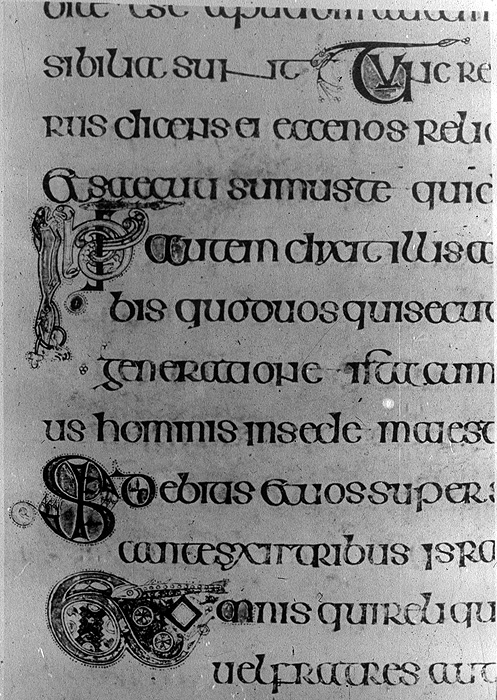 bile est apud dm autem
sibilia sunt Tunc re
rus dicens ei ecce nos reli
& secuti sumus te quid
Ihs autem dixit illis a
bis quod uos qui secut
generatione
us hominis in sede maiest
Sedebitis & uos super s
cantes xii tribus isra
& omnis qui reliqu
uel fratres aut